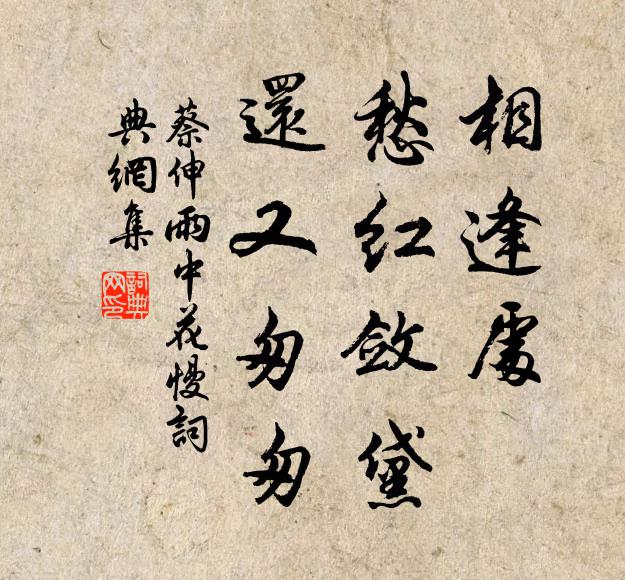 相逢處
愁紅斂黛
還又匆匆
蔡伸雨中花慢詞
典網集
詞典網印